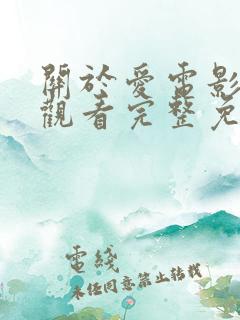 關於愛電影
觀看完整免
電綫
未任同意禁止轉載